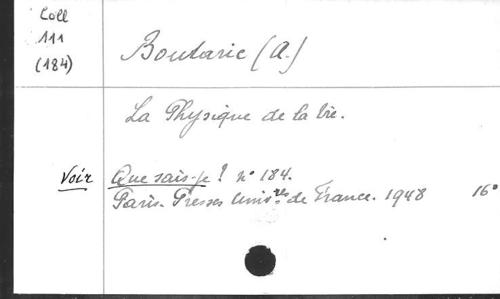 Coll
111
(184)
Boutaric (A.)
La Physique de la Vie.
Voir Que sais-je? n° 184.
Paris. Presses Univ.res de France. 1948 16°